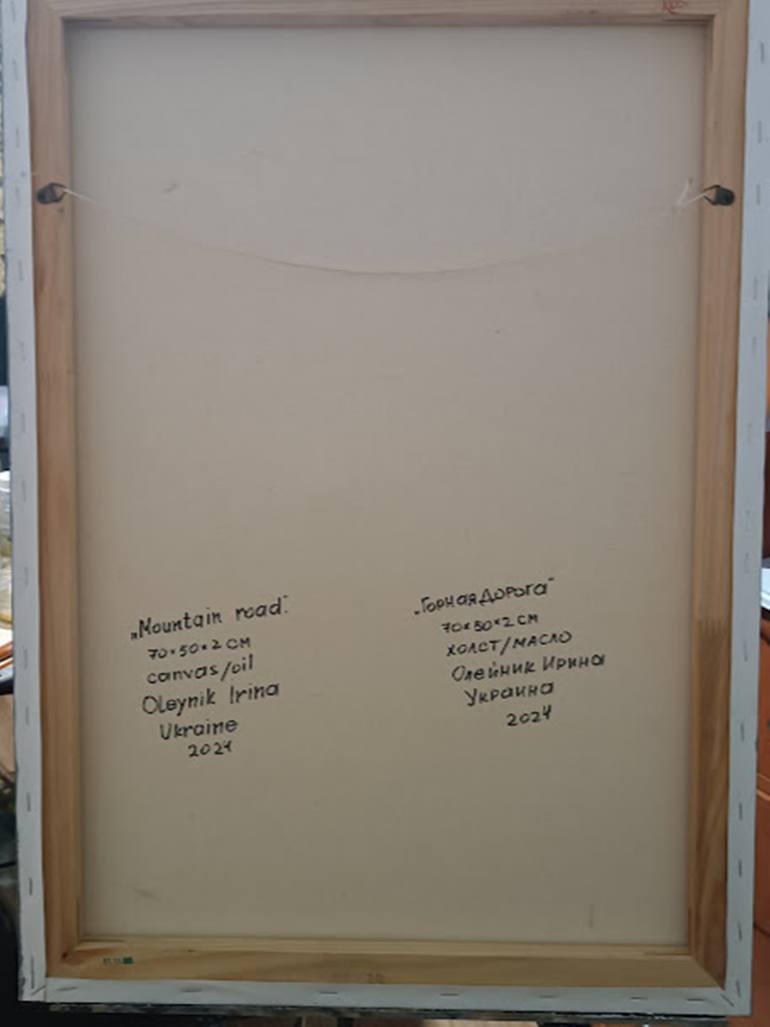 „Mountain road"
70×50×2 см
canvas/oil
Oleynik Irina
Ukraine
2024
„Горная Дорога"
70×50×2 см
холст/масло
Олейник Ирина
Украина
2024